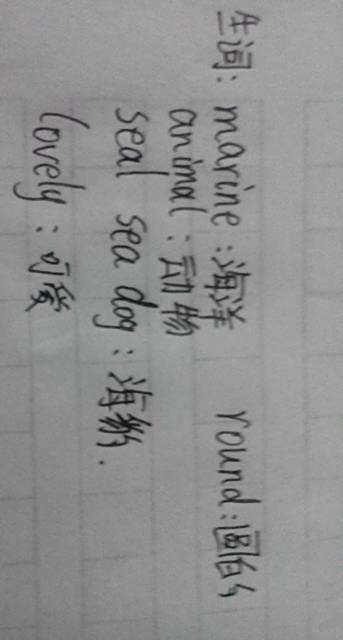 生词: marine:海洋 round:圆的
animal:动物
seal sea dog:海豹.
lovely:可爱